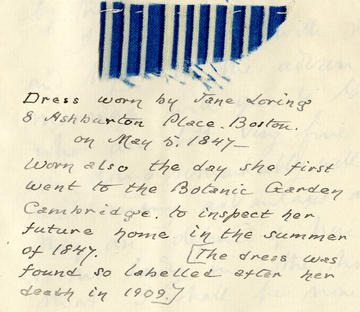 Dress worn by Jane Loring
8 Ashburton Place. Boston.
on May 5. 1847—
Worn also the day she first
went to the Botanic Garden
Cambridge. to inspect her
future home in the summer
of 1847. [The dress was
found so labelled after her
death in 1909.]